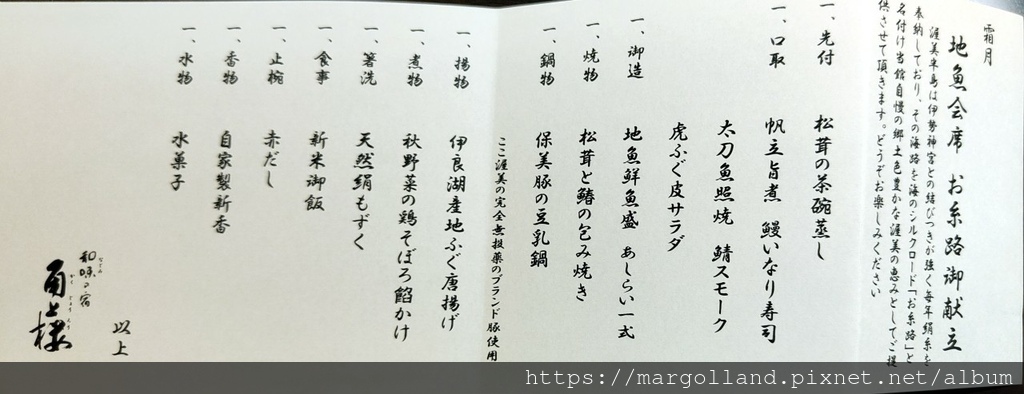 霜月
地魚会席　お糸路御献立
渥美半島は伊勢神宮との結びつきが強く毎年絹糸を
奉納しており、その海路を海のシルクロード「お糸路」と
名付け当館自慢の郷土色豊かな渥美の恵みとしてご提
供させて頂きます。どうぞお楽しみください
一、先付　松茸の茶碗蒸し
一、口取　帆立旨煮　鰻いなり寿司
太刀魚照焼　鯖スモーク
虎ふぐ皮サラダ
一、御造　地魚鮮魚盛　あしらい一式
一、焼物　松茸と鰆の包み焼き
一、鍋物　保美豚の豆乳鍋
ここ渥美の完全無投薬のブランド豚使用
一、揚物　伊良湖産地ふぐ唐揚げ
一、煮物　秋野菜の鶏そぼろ餡かけ
一、箸洗　天然絹もずく
一、食事　新米御飯
一、止椀　赤だし
一、香物　自家製新香
一、水物　水菓子
以上
和味の宿
角上楼
https://margolland.pixnet.net/album